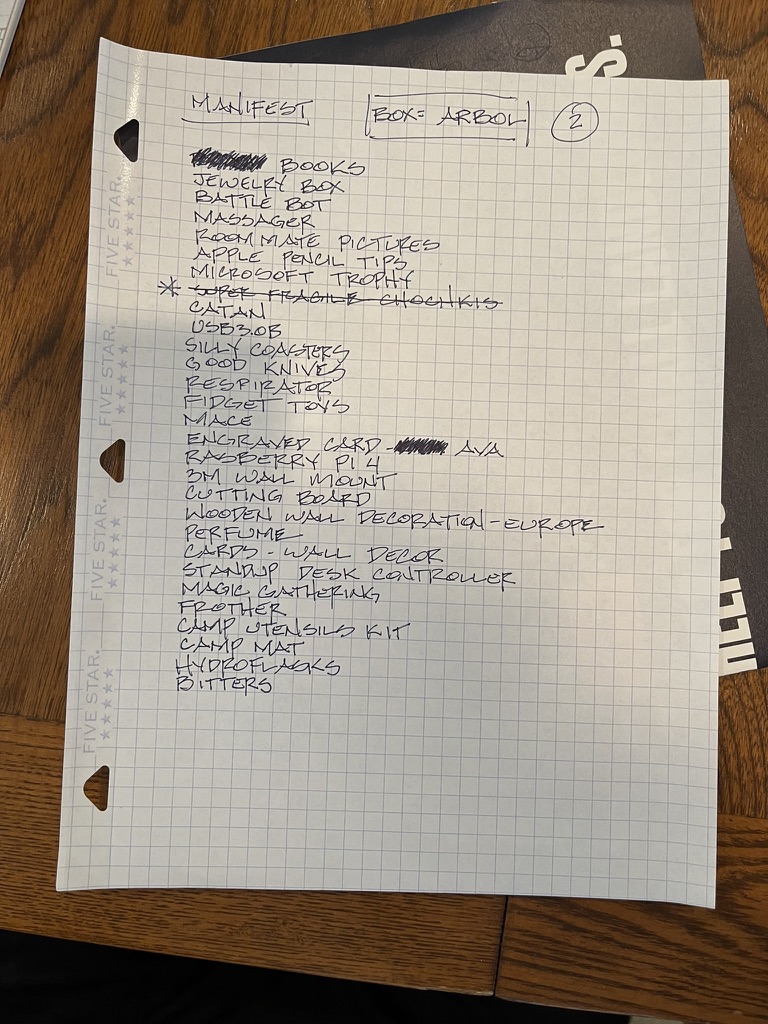 MANIFEST BOX= ARBOL 2
BOOKS
JEWELRY BOX
BATTLE BOT
MASSAGER
ROOMMATE PICTURES
APPLE PENCIL TIPS
MICROSOFT TROPHY
* SUPER FRAGILE CHOCHKIS
CATAN
USB3.0B
SILLY COASTERS
GOOD KNIVES
RESPIRATOR
FIDGET TOYS
MACE
ENGRAVED CARD - AVA
RASBERRY PI 4
3M WALL MOUNT
CUTTING BOARD
WOODEN WALL DECORATION - EUROPE
PERFUME
CARDS - WALL DECOR
STANDUP DESK CONTROLLER
MAGIC GATHERING
FROTHER
CAMP UTENSILS KIT
CAMP MAT
HYDROFLASKS
BITTERS
FIVE STAR.
FIVE STAR.
FIVE STAR.
FIVE STAR.
S.